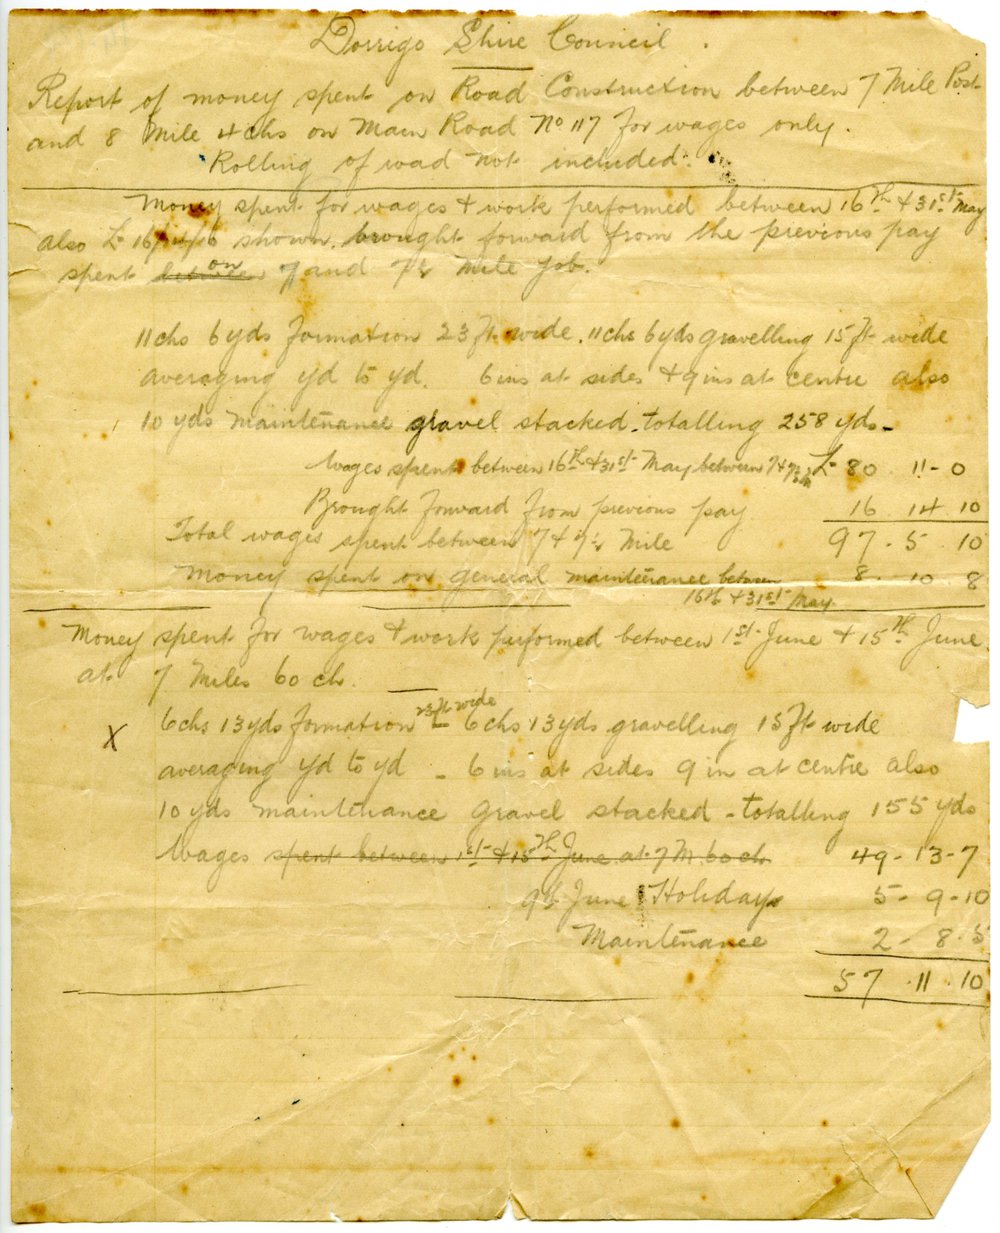 Dorrigo Shire Council.
Report of money spent on Road Construction between 7 Mile Post
and 8 Mile 4chs on Main Road No 117 for wages only.
Rolling of road not included.
Money spent for wages & work performed between 16th & 31st May
also £ 16/14/ shown, brought forward from the previous pay
spent between on 7 and 7½ Mile Job.
11chs 6yds formation 23ft wide. 11chs 6yds gravelling 15ft wide
averaging yd to yd. 6ins at sides & 9ins at centre also
10 yds maintenance gravel stacked - totalling 258 yds -
Wages spent between 16th & 31st May between 7 & 7½ £ 80 . 11 - 0
Brought forward from previous pay 16 . 14 . 10
Total wages spent between 7 & 7½ Mile 97 . 5 . 10
Money spent on general maintenance between 8 . 10 . 8
16th & 31st May.
Money spent for wages & work performed between 1st June & 15th June
at 7 Miles 60 ch.
X 6chs 13yds formation 23ft wide 6chs 13yds gravelling 15ft wide
averaging yd to yd - 6 ins at sides 9 in at centre also
10 yds maintenance gravel stacked - totalling 155 yds
Wages spent between 1st & 15th June at 7 M. 60 ch 49 - 13 - 7
9th June Holiday 5 - 9 - 10
Maintenance 2 - 8 . 5
57 . 11 . 10